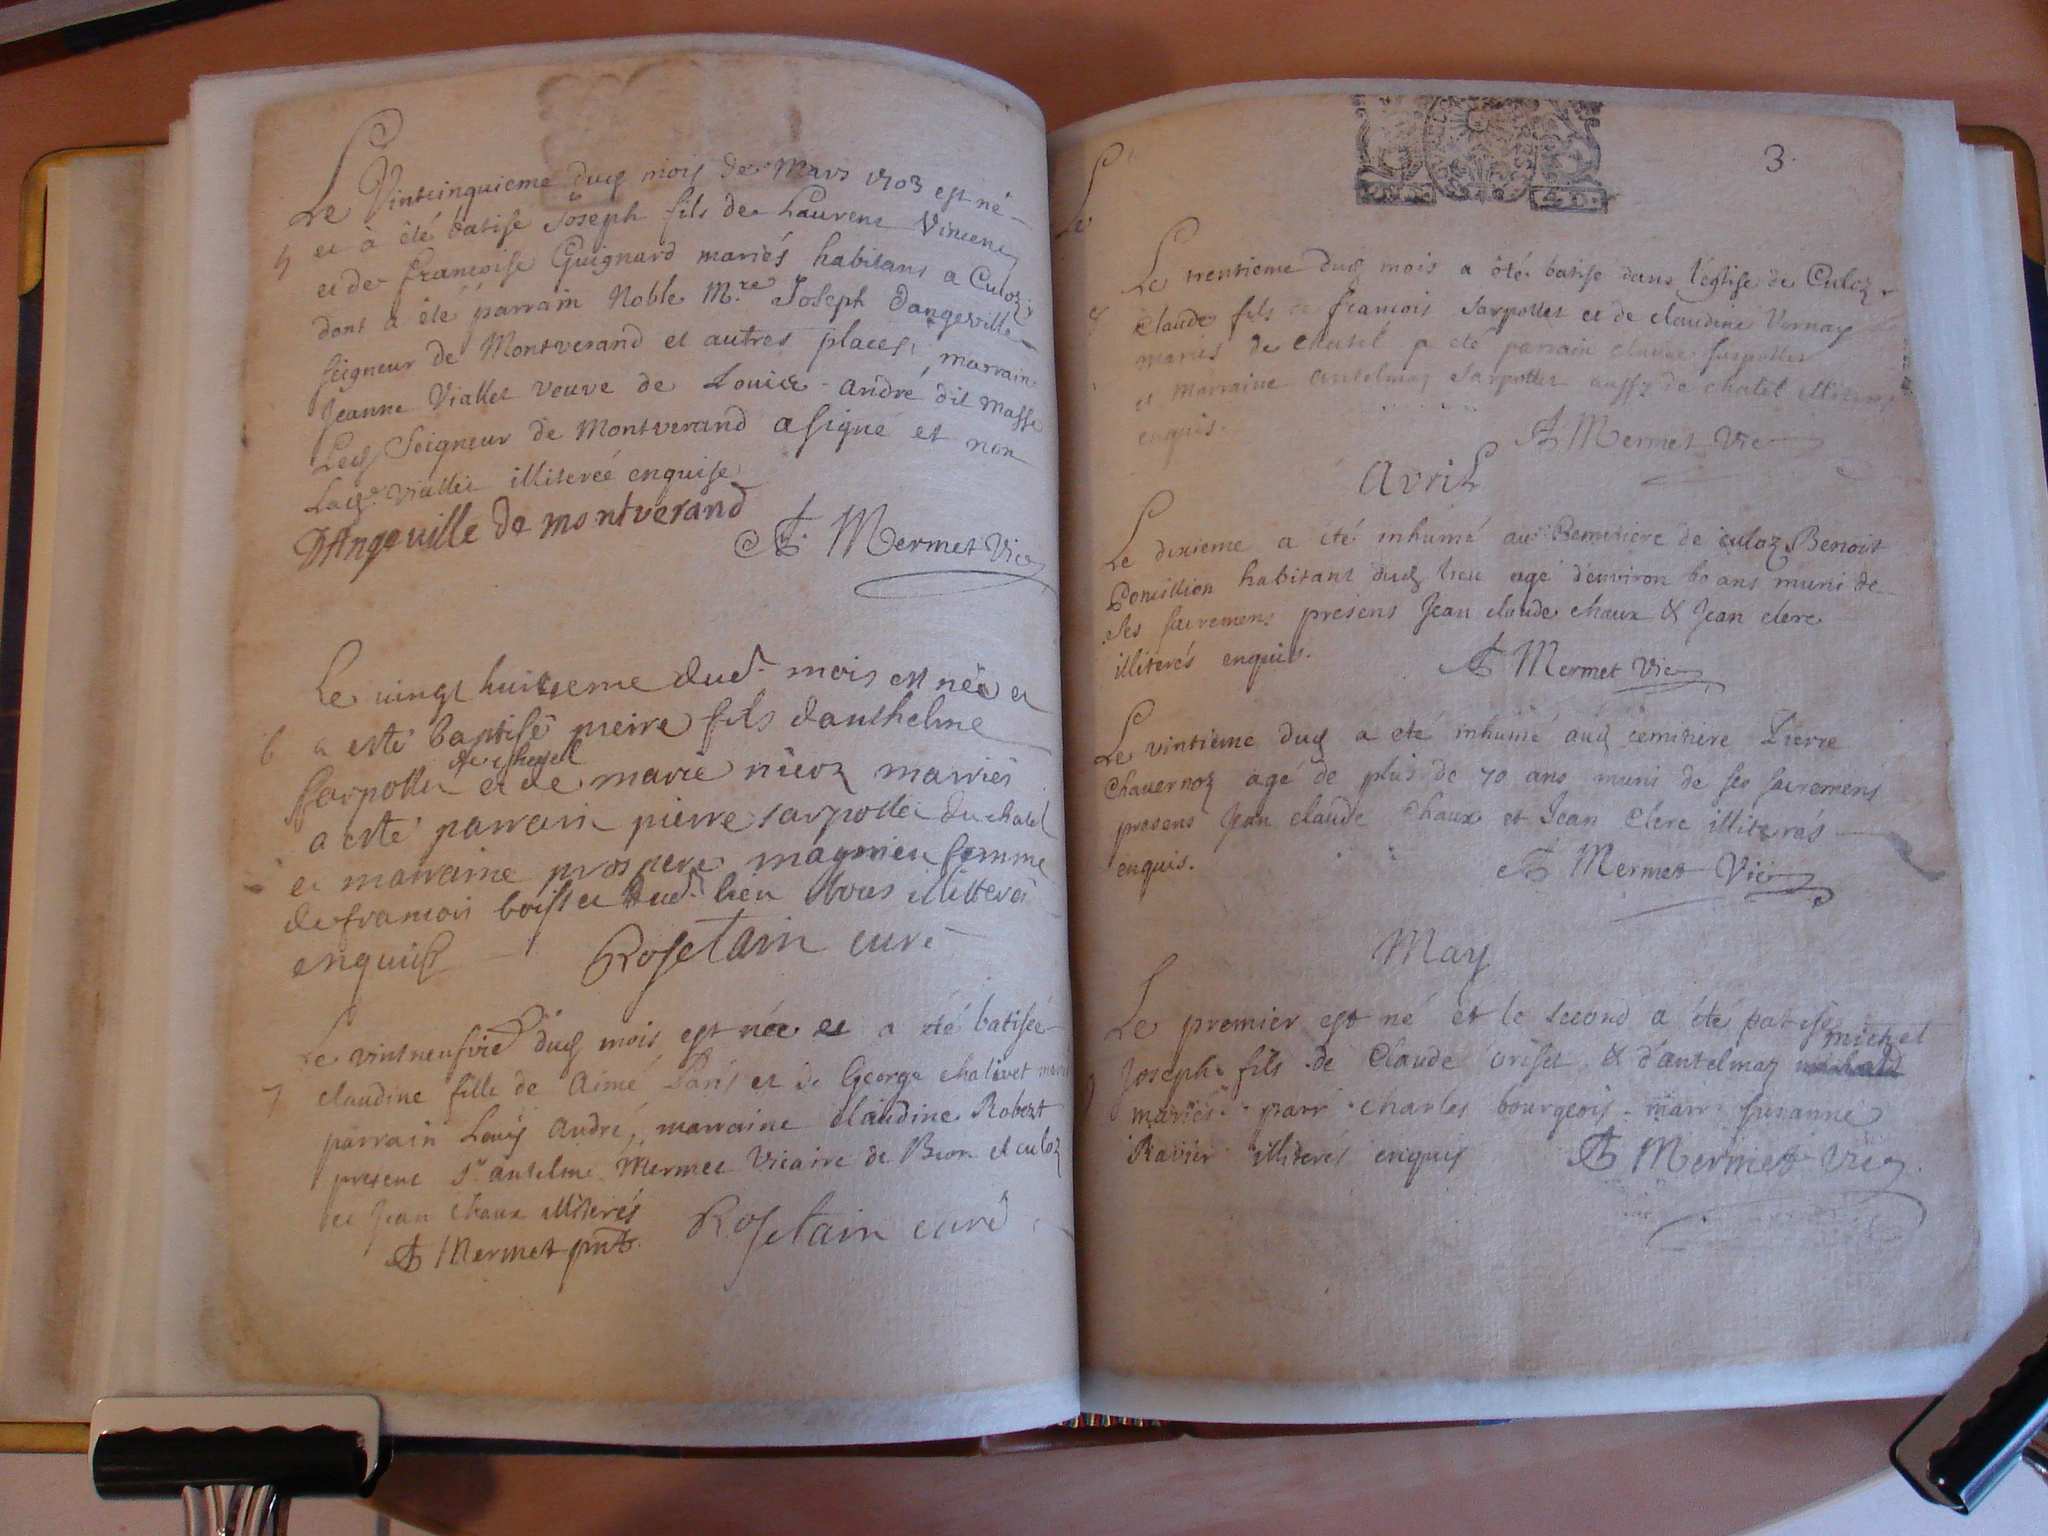 Le Vintcinquieme dud mois de Mars 1703 est né
5 et à été batisé Joseph fils de Laurent Vincent
et de francoise Guignard mariés habitans a Culoz
dont a été parrain Noble M.re Joseph Dangeville
seigneur de Montverand et autres places, marraine
Jeanne Viallet veuve de Louis André dit Masse
Led Seigneur de Montverand a signé et non
Lad.e Viallet illiterée enquise
DAngeville de montverand
A Mermet Vic
Le vingt huitieme dud. mois est née et
6 a esté baptisé pierre fils danthelme
de chatel
sarpollet et de marie nicoz mariés
a esté parrain pierre sarpollet du chatel
et marraine prospere magnieu femme
de francois boisset dud. lieu tous illitterés
enquis
Rosetain curé
Le vintneufvie dud mois est née et a été batisée
7 claudine fille de Aimé Paris et de George chalivet mariés
parrain Louis André, marraine claudine Robert
present Sr antelme Mermet Vicaire de Beon et culoz
et Jean chaux illiterés
A Mermet pnt. Rosetain curé
3.
Le
Le trentieme dud mois a été batisé dans l'église de Culoz
8 claude fils de francois Sarpollet et de claudine Vernay
mariés de chatel a été parrain claude sarpollet
et marraine antelmaz Sarpollet aussy de chatel illiterés
enquis.
A Mermet Vic
Avril
Le dixieme a été inhumé au Cemitiere de culoz Benoit
Pomillion habitant dud lieu agé d'environ 60 ans muni de
ses sacremens presens Jean claude chaux & Jean clerc
illiterés enquis.
A Mermet Vic
Le vintieme dud a eté inhumé aud cemitiere Pierre
Chavernoz agé de plus de 70 ans muni de ses sacremens
presens Jean claude Chaux et Jean Clerc illiterés
enquis.
A Mermet Vic
May
Le premier est né et le second a été batisé
michel
9 Joseph fils de Claude brisset & d'antelmaz
mariés parr charles bourgeois marr suzanne
Ravier illiterés enquis
A Mermet Vic